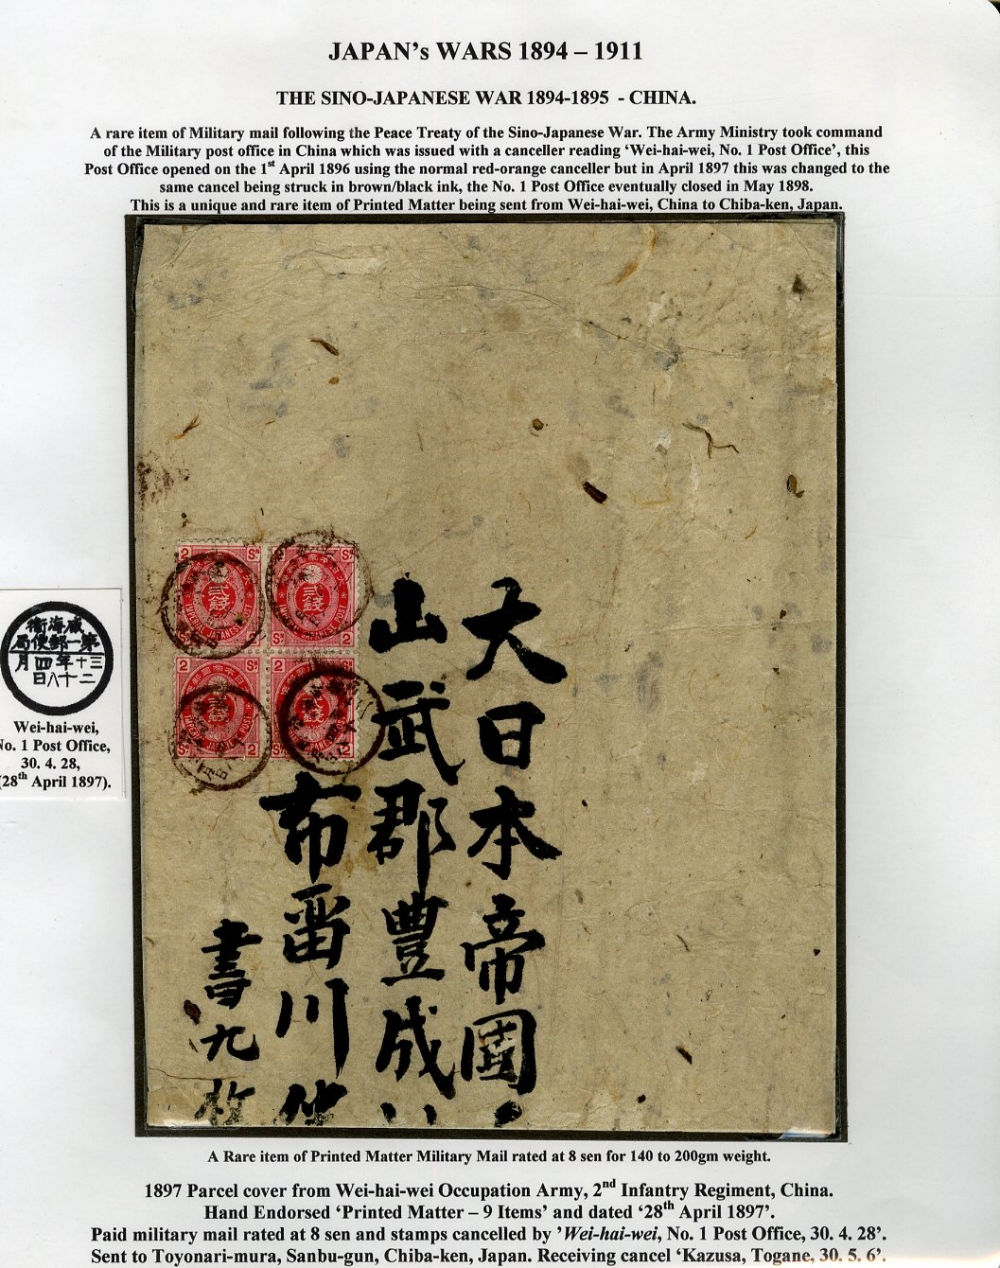 JAPAN's WARS 1894 – 1911
THE SINO-JAPANESE WAR 1894-1895 - CHINA.
A rare item of Military mail following the Peace Treaty of the Sino-Japanese War. The Army Ministry took command
of the Military post office in China which was issued with a canceller reading 'Wei-hai-wei, No. 1 Post Office', this
Post Office opened on the 1st April 1896 using the normal red-orange canceller but in April 1897 this was changed to the
same cancel being struck in brown/black ink, the No. 1 Post Office eventually closed in May 1898.
This is a unique and rare item of Printed Matter being sent from Wei-hai-wei, China to Chiba-ken, Japan.
大日本帝國
山武郡豊成
布留川
書九枚
2 Sn
貳錢
IMPERIAL JAPANESE POST
2 Sn
貳錢
IMPERIAL JAPANESE POST
2 Sn
貳錢
IMPERIAL JAPANESE POST
2 Sn
貳錢
IMPERIAL JAPANESE POST
威海衛
第一郵便局
三十年四月
二十八日
Wei-hai-wei,
No. 1 Post Office,
30. 4. 28,
(28th April 1897).
A Rare item of Printed Matter Military Mail rated at 8 sen for 140 to 200gm weight.
1897 Parcel cover from Wei-hai-wei Occupation Army, 2nd Infantry Regiment, China.
Hand Endorsed 'Printed Matter – 9 Items' and dated '28th April 1897'.
Paid military mail rated at 8 sen and stamps cancelled by 'Wei-hai-wei, No. 1 Post Office, 30. 4. 28'.
Sent to Toyonari-mura, Sanbu-gun, Chiba-ken, Japan. Receiving cancel 'Kazusa, Togane, 30. 5. 6'.